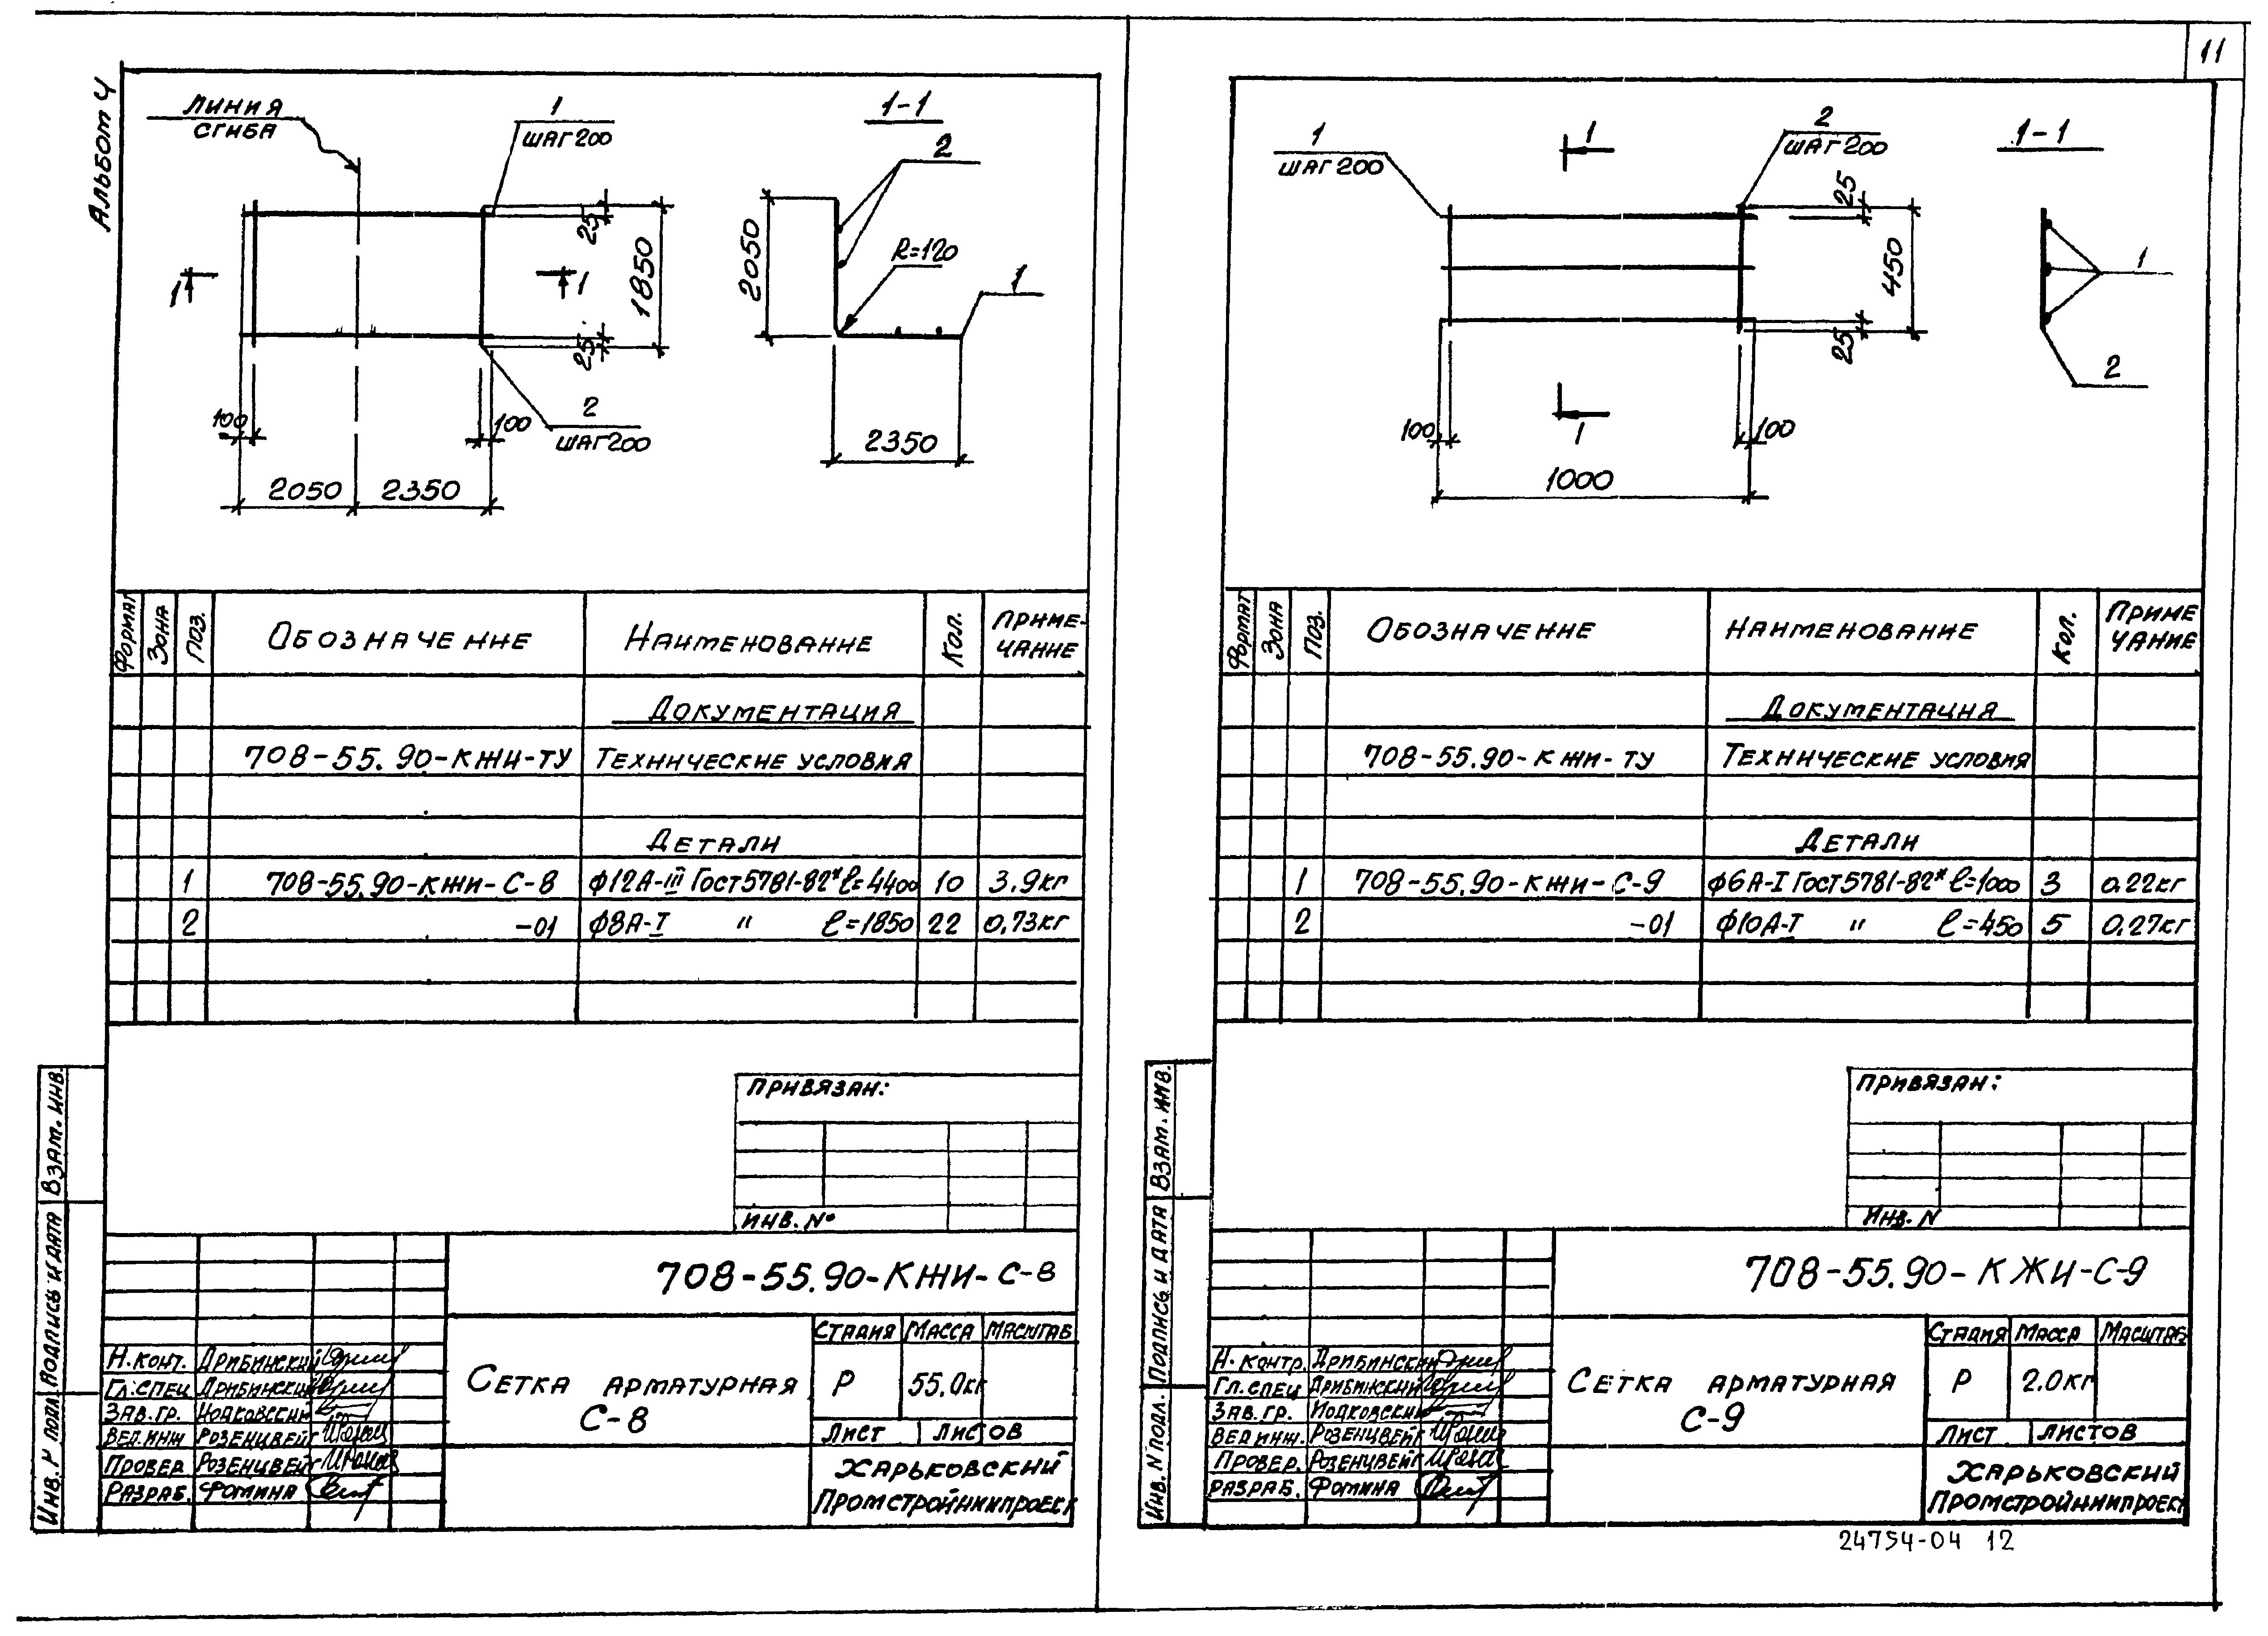 11
Альбом 4
ЛИНИЯ
СГИБА
1
ШАГ 200
25
1850
25
1
1
100
100
2
ШАГ 200
2050
2350
1-1
2
2050
R=120
1
2350
Формат
Зона
Поз.
Обозначение
Наименование
Кол.
Приме-
чание
Документация
708-55.90-КЖИ-ТУ
Технические условия
Детали
1
708-55.90-КЖИ-С-8
ф12А-III Гост 5781-82* ℓ=4400
10
3,9кг
2
-01
ф8А-I " ℓ=1850
22
0,73кг
Привязан:
Инв. №
708-55.90-КЖИ-С-8
Стадия
Масса
Масштаб
Р
55.0кг
Сетка арматурная
С-8
Лист
Листов
Харьковский
Промстройниипроект
Н.конт. Дрибинский
Гл.спец Дрибинский
Зав.гр. Иодковский
Вед.инж Розенцвейг
Провер Розенцвейг
Разраб. Фомина
Взам. инв.
Подпись и дата
Инв. N подл.
1
ШАГ 200
1
2
ШАГ 200
25
450
25
100
100
1
1000
1-1
1
2
Формат
Зона
Поз.
Обозначение
Наименование
Кол.
Приме
чание
Документация
708-55.90-КЖИ-ТУ
Технические условия
Детали
1
708-55.90-КЖИ-С-9
ф6А-I Гост 5781-82* ℓ=1000
3
0.22кг
2
-01
ф10А-I " ℓ=450
5
0,27кг
Привязан:
Инв. N
708-55.90-КЖИ-С-9
Стадия
Масса
Масштаб
Р
2.0кг
Сетка арматурная
С-9
Лист
Листов
Харьковский
Промстройниипроект
Н.контр. Дрибинский
Гл.спец Дрибинский
Зав.гр. Иодковский
Вед инж. Розенцвейг
Провер. Розенцвейг
Разраб. Фомина
Взам. инв.
Подпись и дата
Инв. N подл.
24754-04 12